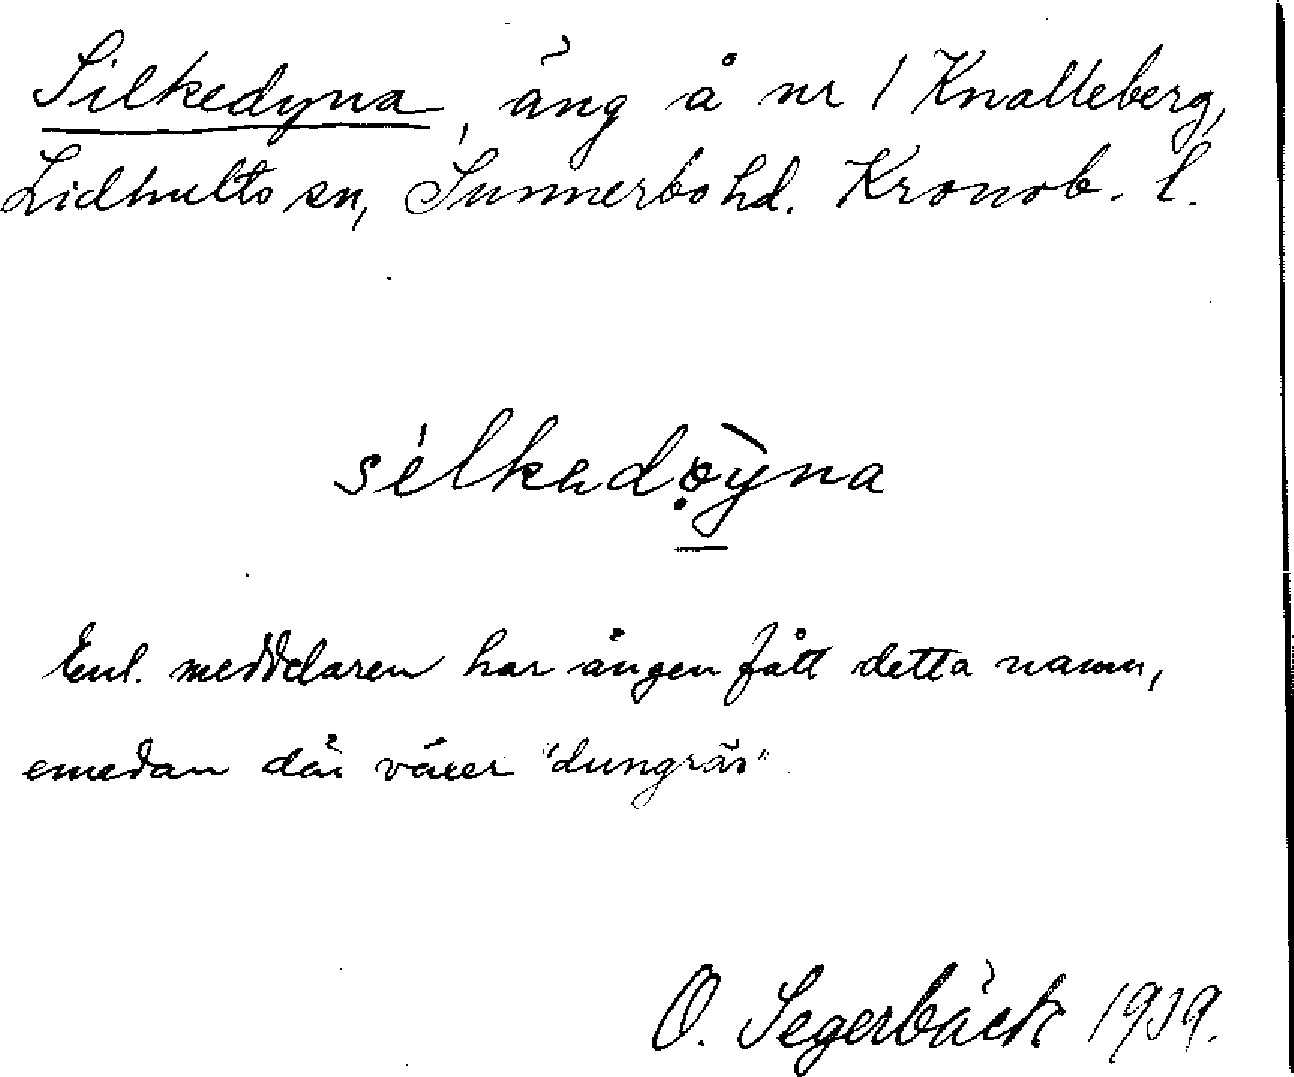 Silkedyna, äng å nr 1 Knalleberg,
Lidhults sn, Sunnerbo hd. Kronob. l.
silkedøyna
Enl. meddelaren har ängen fått detta namn,
emedan där växer "dungräs"
O. Segerbäck 1939.